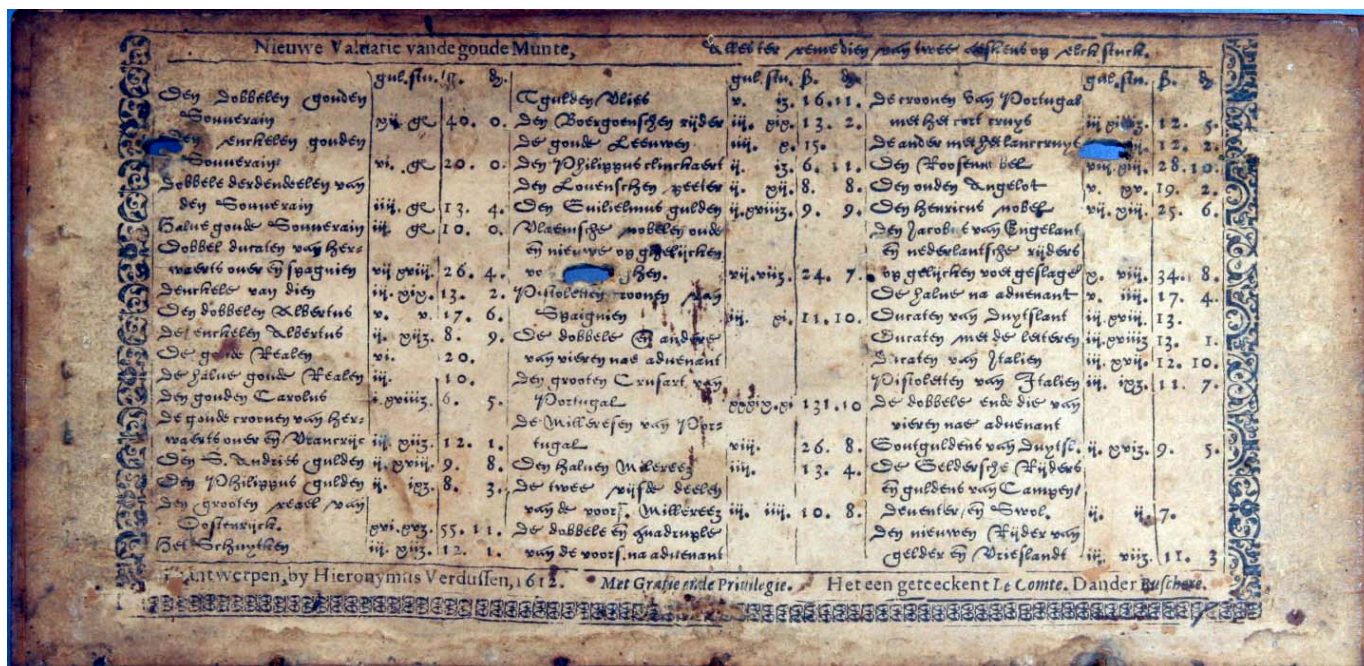 Nieuwe Valuatie vande goude Munte, Alles ter remedien van twee aeskens op elck stuck.
gul. stu. ß. d.
Den dobbelen gouden
Souverain xij. ge 40. 0.
enckelen gouden
Souverain vi. ge 20. 0.
Dobbele derdendeelen van
den Souverain iiij. ge 13. 4.
Halve goude Souverain iij. ge 10. 0.
Dobbel ducaten van her-
waerts over eñ spagnien vij xviij. 26. 4.
Denckele van dien iij. xix. 13. 2.
Den dobbelen Albertus v. v. 17. 6.
De enckelen Albertus ij. xijz. 8. 9.
De goude Realen vi. 20.
De halve goude Realen iij. 10.
Den gouden Carolus i. xviijz. 6. 5.
De goude croonen van her-
waerts over eñ Vrancrijc iij. xijz. 12. 1.
Den S. Andries gulden ij. xviij. 9. 8.
Den Philippus gulden ij. ixz. 8. 3.
Den grooten reael van
Oostenrijck. xvi. xvz. 55. 11.
Het Schuytken iij. xijz. 12. 1.
gul. stu. ß. d.
Tgulden Vlies v. iz. 16. 11.
Den Boergoenschen rijder iij. xix. 13. 2.
De goude Leeuwen iiij. x. 15.
Den Philippus clinckaert ij. iz. 6. 11.
Den Lovenschen peeter ij. xij. 8. 8.
Den Guilielmus gulden ij. xviijz. 9. 9.
Vlaemsche nobelen oude
eñ nieuwe op ghelijcken
vo ghen. vij. viiz. 24. 7.
Pistoletten croonen van
Spaignien iij. xi. 11. 10.
De dobbele eñ andere
van vieren nae advenant
Den grooten Crusart van
Portugal xxxix. xi 131. 10
De Milleresen van Por-
tugal viij. 26. 8.
Den halven Milereez iiij. 13. 4.
De twee vijfde deelen
van de voors. Millereez iij. iiij. 10. 8.
De dobbele eñ quadruple
van de voors. na advenant
gul. stu. ß. d.
De croonen van Portugal
met het cort cruys iij 12. 5.
De ander met het lanccruys 12. 2.
Den Roosenobel viij. xiij. 28. 10.
Den ouden Angelot v. xv. 19. 2.
Den Henricus nobel vij. xiij. 25. 6.
Den Jacobus van Engelant
eñ nederlantsche rijders
op gelijcken voet geslagē x. viij. 34. 8.
De halve na advenant v. iiij. 17. 4.
Ducaten van Duytslant iij. xviij 13.
Ducaten met de letteren iij. xviijz 13. 1.
Ducaten van Italien iij. xvij. 12. 10.
Pistoletten van Italien iij. ixz. 11. 7.
De dobbele ende die van
vieren nae advenant
Goutguldens van Duytsl. ij. xviz. 9. 5.
De Geldersche Rijders
eñ guldens van Campen
Deventer, eñ Swol. ij. ij. 7.
Den nieuwen Rijder van
gelder eñ Vrieslandt iij. viiz. 11. 3
Antwerpen, by Hieronymus Verdussen, 1612. Met Gratie ende Privilegie. Het een geteeckent Le Comte. Dander Buschere.